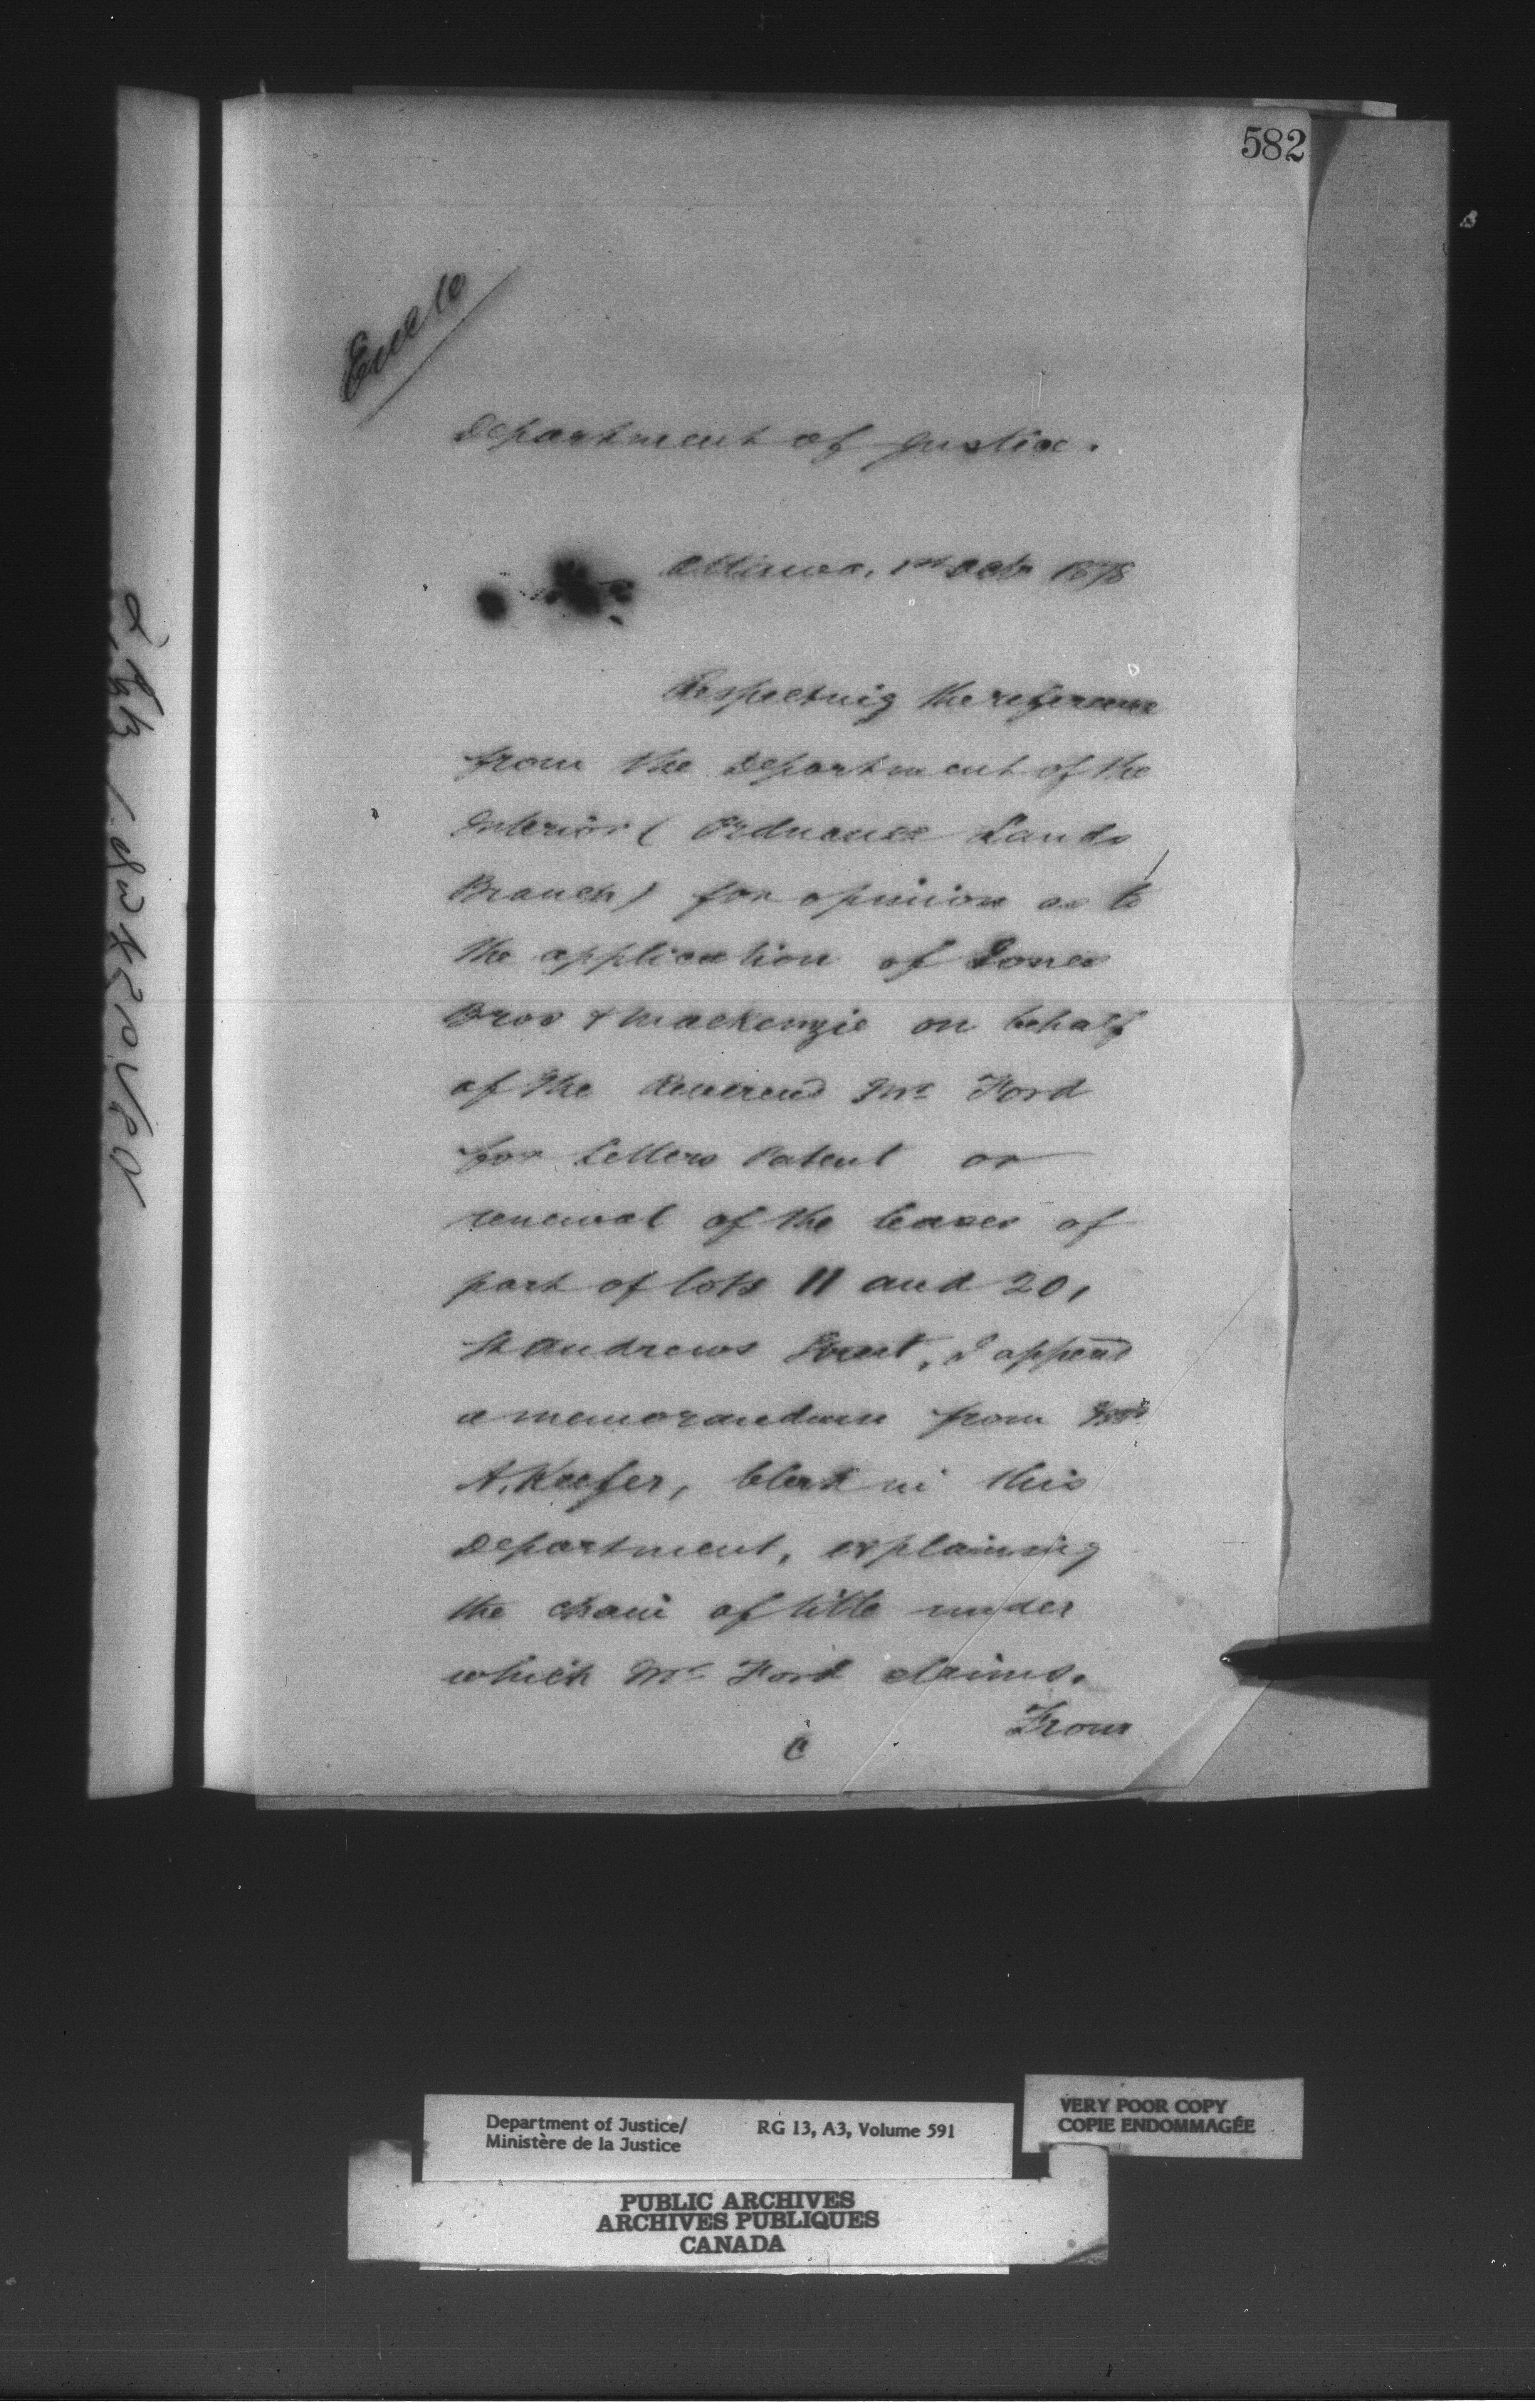 582
Encls
Department of Justice.
Ottawa, 1st Octr 1878
Respecting the reference
from the Department of the
Interior (Ordnance Lands
Branch) for opinion as to
the application of Jones
Bros & Mackenzie on behalf
of the Reverend Mr Ford
for Letters Patent or
renewal of the leases of
part of lots 11 and 20,
St Andrews Street, I append
a memorandum from Mr
A. Keefer, Clerk in this
Department, explaining
the chain of title under
which Mr Ford claims.
From
Department of Justice/
Ministère de la Justice
RG 13, A3, Volume 591
VERY POOR COPY
COPIE ENDOMMAGÉE
PUBLIC ARCHIVES
ARCHIVES PUBLIQUES
CANADA